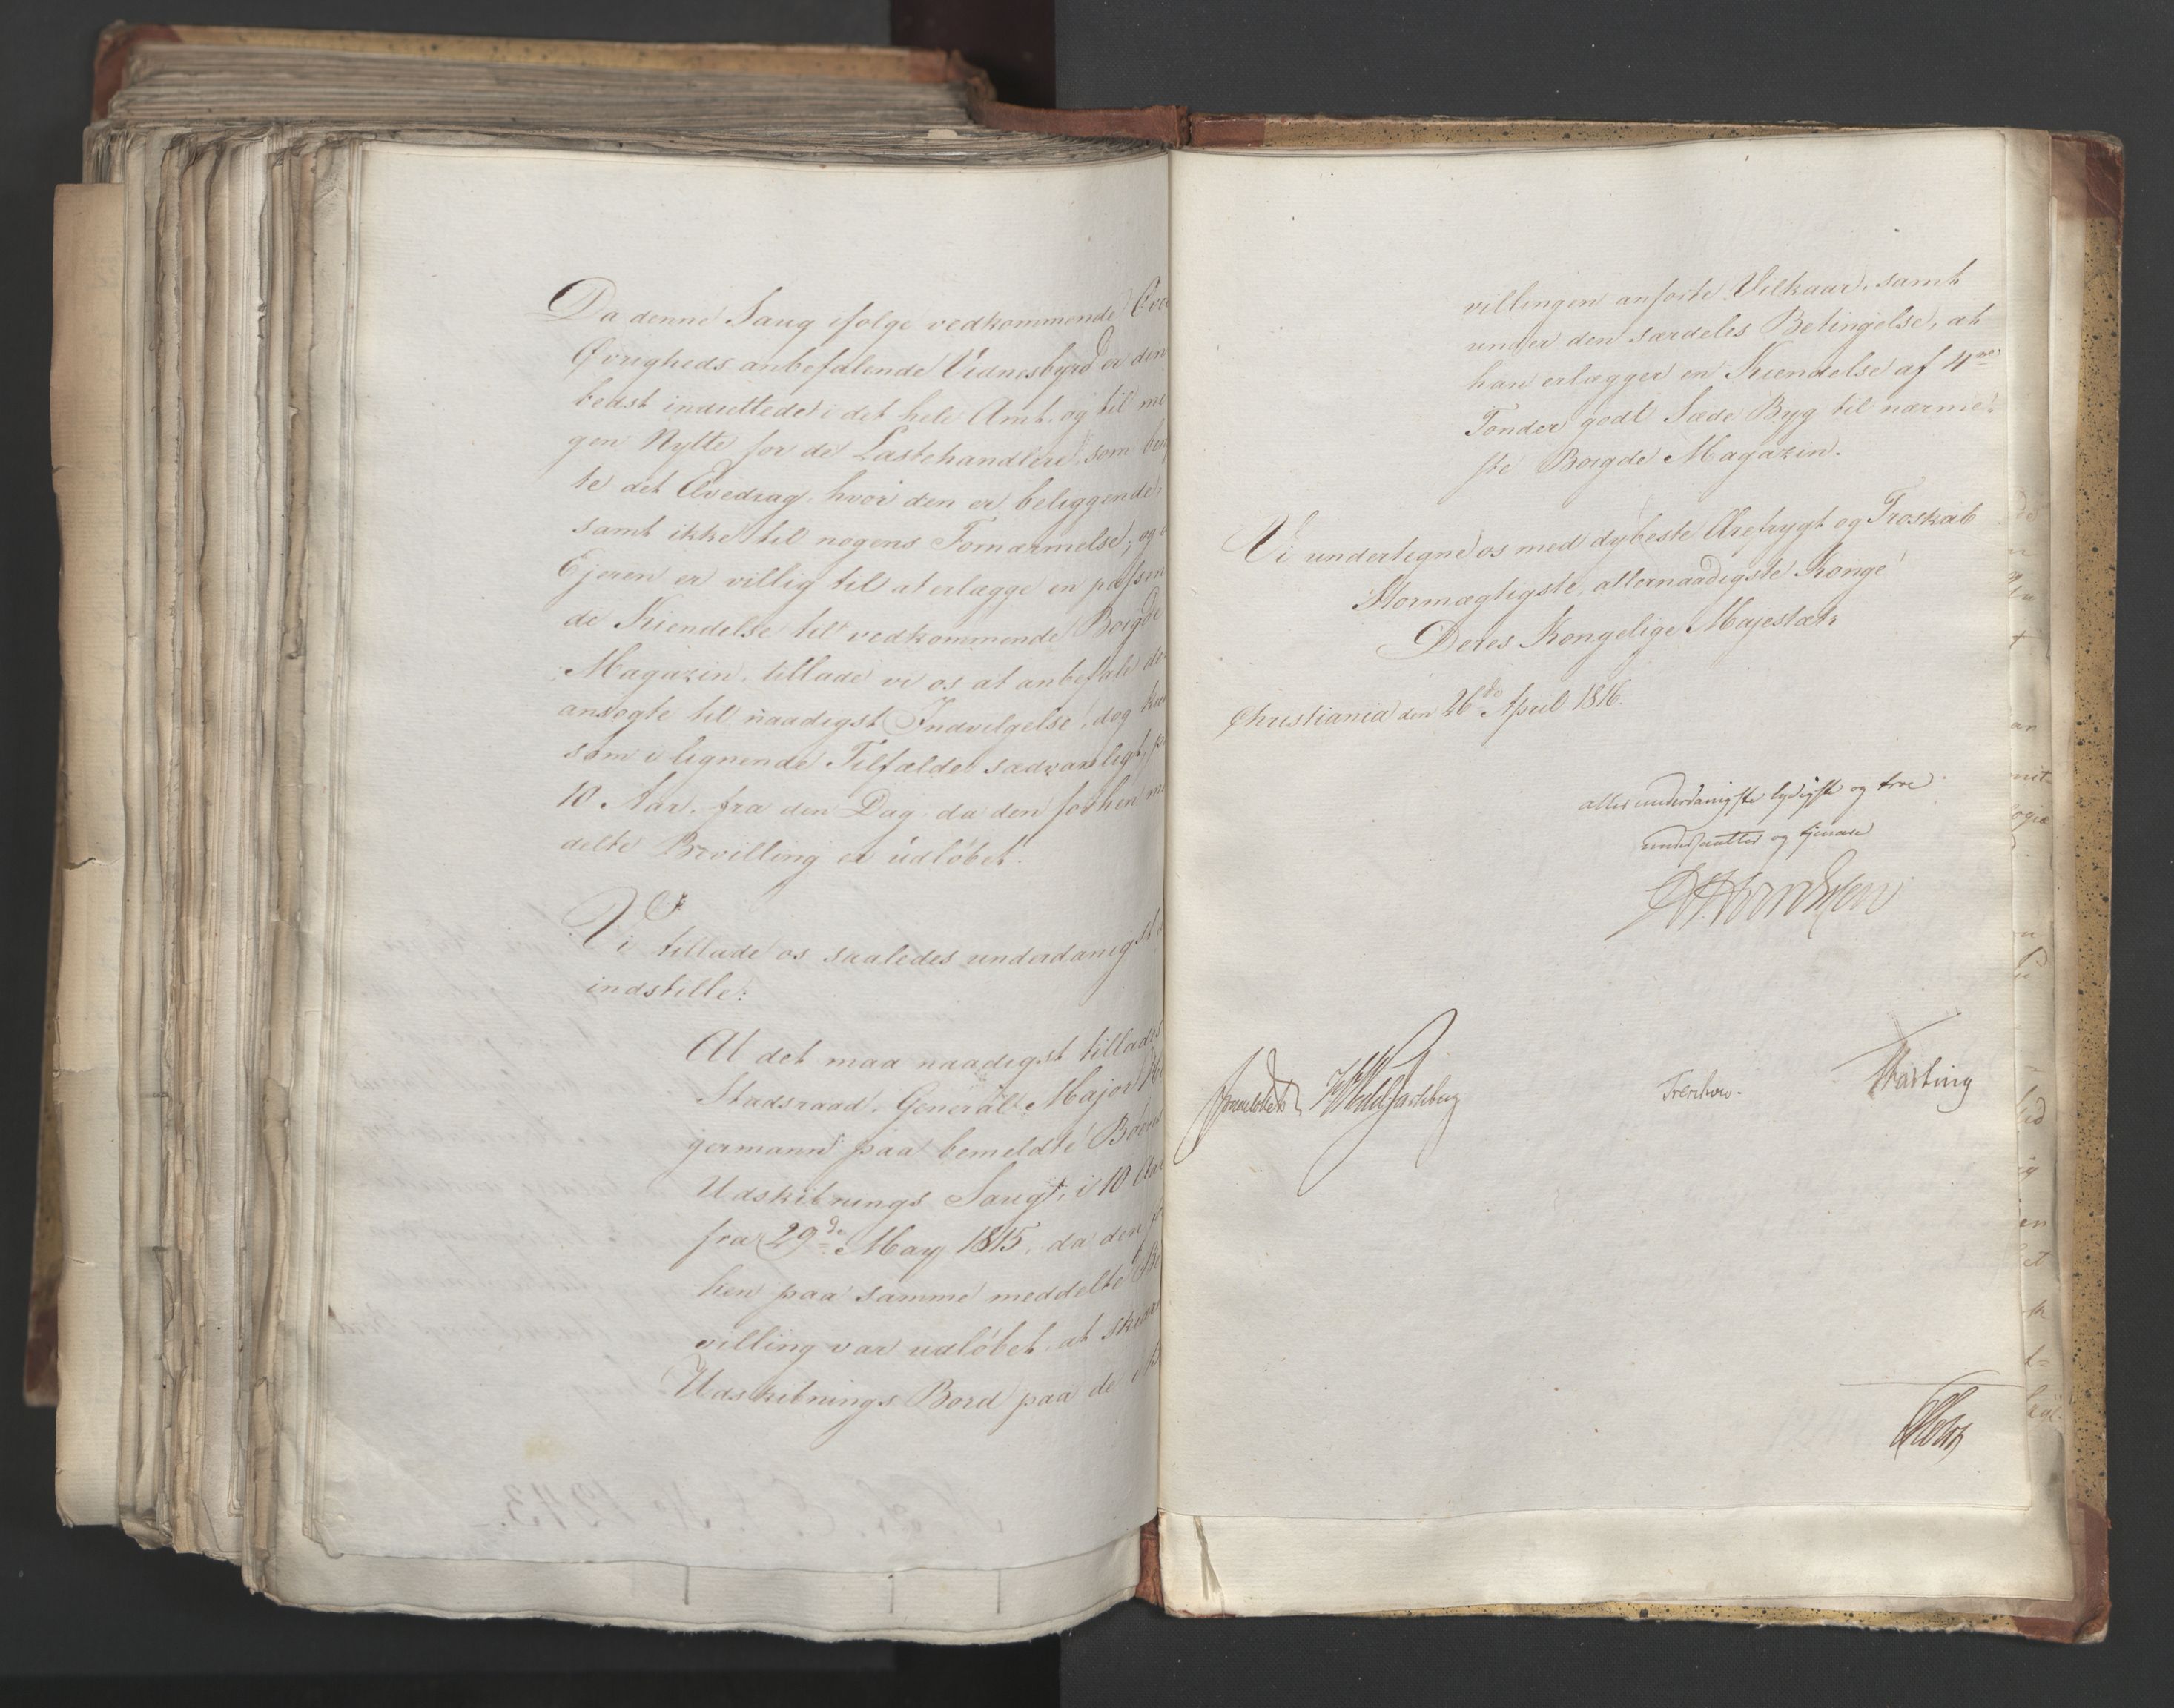 Da denne Saug ifølge vedkommende
Øvrigheds anbefalende Vidnesbyrd er den
bedst indrettede i det hele Amt, og til me
gen Nytte for de Lasthandlere, som
te det Qvedrag, hvor den er beliggende,
samt ikke til nogens Fornærmelse; og
Ejeren er villig til at erlægge en passen
de Kiendelse til vedkommende Boigde
Magazin, tillade vi os at anbefale de
ansøgte til naadigst Indvilgelse, dog kun
som i lignende Tilfælde sædvanligt, på
10 Aar, fra den Dag da den forhen me
delte Bevilling er udløbet.
Vi tillade os saaledes underdanigst
indstille:
At det maa naadigst tillades
Stadsraad, General Major He
germann paa bemeldte
Udskibnings Saug, i 10 Aar
fra 29de May 1815, da den
hen paa samme meddelte
villing var udløbet, at skiære
Udskibnings Bord paa de
villingen anførte Vilkaar, samt
under den særdeles Betingelse, at
han erlægger en Kiendelse af 4re
Tønder godt Sæde Byg til nærme
ste Boigde Magazin.
Vi undertegne os med dybeste Ærefrygt og Troskab
Stormægtigste, allernaadigste Konge
Deres Kongelige Majestæts
Christiania den 26de April 1816.
allerunderdanigste lydigste og troe
undersaatter og tjenere
Treschow.
N. Dr. C. E. No 1243.